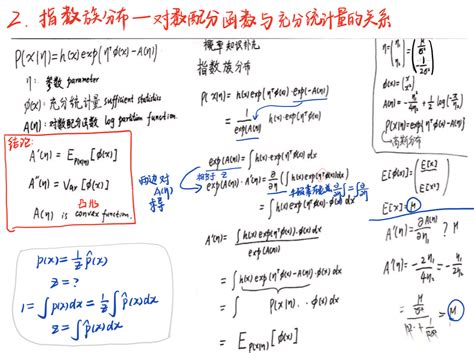 2. 指数族分布—对数配分函数与充分统计量的关系
P(x|η) = h(x) exp(η^T φ(x) − A(η))
η: 参数 parameter
φ(x): 充分统计量 sufficient statistics
A(η): 对数配分函数 log partition function.
结论:
A'(η) = E_{P(x|η)}[φ(x)]
A''(η) = Var[φ(x)]
A(η) is convex function.
P(x) = 1/z p̂(x)
z = ?
1 = ∫ p(x) dx = 1/z ∫ p̂(x) dx
z = ∫ p̂(x) dx
概率知识补充
指数族分布
P(x|η) = h(x) exp(η^T φ(x)) · exp(−A(η))
= 1/exp(A(η)) h(x) · exp(η^T φ(x))
exp(A(η)) = ∫ h(x) exp(η^T φ(x)) dx
exp(A(η)) · A'(η) = ∂/∂η (∫ h(x) exp(η^T φ(x)) dx)
= ∫ h(x) exp(η^T φ(x)) · φ(x) dx
A'(η) = ∫ h(x) exp(η^T φ(x)) · φ(x) dx / exp(A(η))
= ∫ h(x) exp(η^T φ(x) − A(η)) · φ(x) dx
= ∫ P(x|η) · φ(x) dx
= E_{P(x|η)}[φ(x)]
φ(x) = (x x²)
A(η) = −η₁²/4η₂ + 1/2 log(−π/η₂)
P(x|η) = exp(η^T φ(x) − A(η))
高斯分布
E[φ(x)] = (E[x] E[x²])
E[x] = μ
A'(η₁) = ∂A(η)/∂η₁ ? μ
A'(η₁) = −2η₁/4η₂ = −η₁/2η₂
= μ